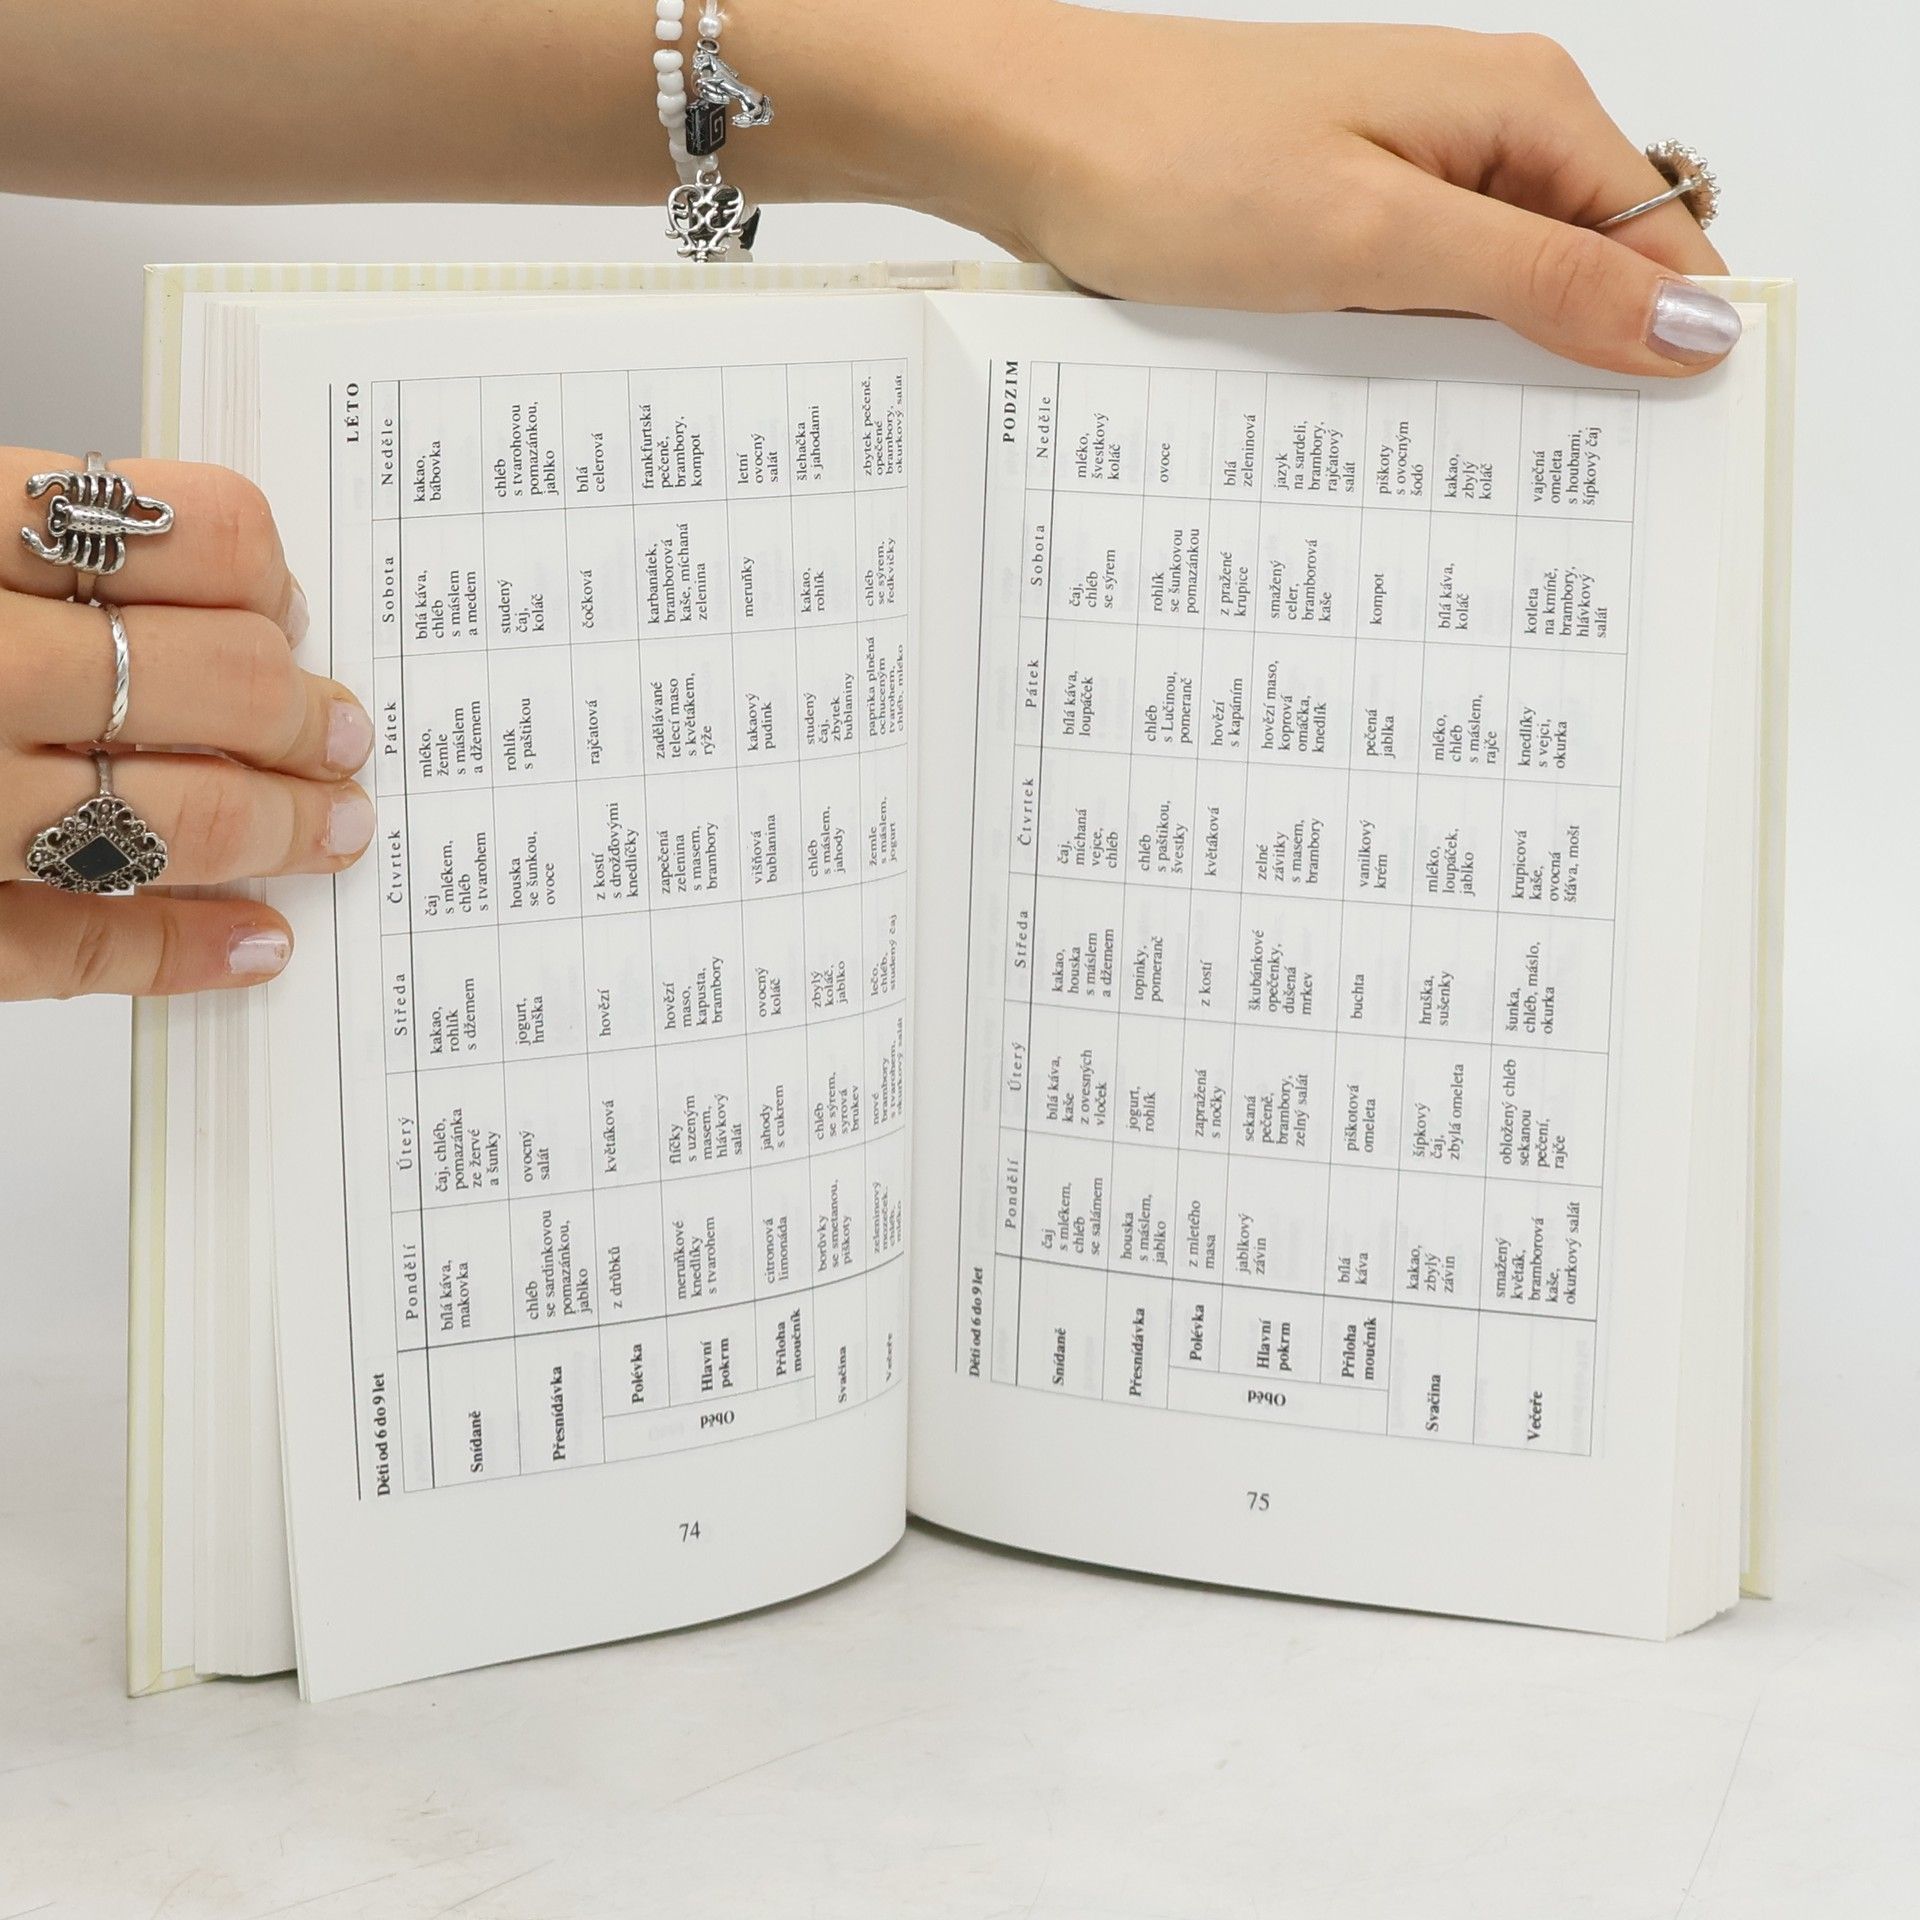 LÉTO
Děti od 6 do 9 let
Pondělí
Úterý
Středa
Čtvrtek
Pátek
Sobota
Neděle
Snídaně
bílá káva,
makovka
čaj, chléb,
pomazánka
ze žervé
a šunky
kakao,
rohlík
s džemem
čaj
s mlékem,
chléb
s tvarohem
mléko,
žemle
s máslem
a džemem
bílá káva,
chléb
s máslem
a medem
kakao,
bábovka
Přesnídávka
chléb
se sardinkovou
pomazánkou,
jablko
ovocný
salát
jogurt,
hruška
houska
se šunkou,
ovoce
rohlík
s paštikou
studený
čaj,
koláč
chléb
s tvarohovou
pomazánkou,
jablko
Oběd
Polévka
z drůbků
květáková
hovězí
z kostí
s drožďovými
knedlíčky
rajčatová
čočková
bílá
celerová
Hlavní
pokrm
meruňkové
knedlíky
s tvarohem
flíčky
s uzeným
masem,
hlávkový
salát
hovězí
maso,
kapusta,
brambory
zapečená
zelenina
s masem,
brambory
zadělávané
telecí maso
s květákem,
rýže
karbanátek,
bramborová
kaše, míchaná
zelenina
frankfurtská
pečeně,
brambory,
kompot
Příloha
moučník
citronová
limonáda
jahody
s cukrem
ovocný
koláč
višňová
bublanina
kakaový
pudink
meruňky
letní
ovocný
salát
Svačina
borůvky
se smetanou,
piškoty
chléb
se sýrem,
syrová
brukev
zbylý
koláč,
jablko
chléb
s máslem,
jahody
studený
čaj,
zbytek
bublaniny
kakao,
rohlík
šlehačka
s jahodami
Večeře
zeleninový
mozeček,
chléb,
mléko
nové
brambory
s tvarohem,
okurkový salát
lečo,
chléb,
studený čaj
žemle
s máslem,
jogurt
paprika plněná
ochuceným
tvarohem,
chléb, mléko
chléb
se sýrem,
ředkvičky
zbytek pečeně,
opečené
brambory,
okurkový salát
74
PODZIM
Děti od 6 do 9 let
Pondělí
Úterý
Středa
Čtvrtek
Pátek
Sobota
Neděle
Snídaně
čaj
s mlékem,
chléb
se salámem
bílá káva,
kaše
z ovesných
vloček
kakao,
houska
s máslem
a džemem
čaj,
míchaná
vejce,
chléb
bílá káva,
loupáček
čaj,
chléb
se sýrem
mléko,
švestkový
koláč
Přesnídávka
houska
s máslem,
jablko
jogurt,
rohlík
topinky,
pomeranč
chléb
s paštikou,
švestky
chléb
s Lučinou,
pomeranč
rohlík
se šunkovou
pomazánkou
ovoce
Oběd
Polévka
z mletého
masa
zapražená
s nočky
z kostí
květáková
hovězí
s kapáním
z pražené
krupice
bílá
zeleninová
Hlavní
pokrm
jablkový
závin
sekaná
pečeně,
brambory,
zelný salát
škubánkové
opečenky,
dušená
mrkev
zelné
závitky
s masem,
brambory
hovězí maso,
koprová
omáčka,
knedlík
smažený
celer,
bramborová
kaše
jazyk
na sardeli,
brambory,
rajčatový
salát
Příloha
moučník
bílá
káva
piškotová
omeleta
buchta
vanilkový
krém
pečená
jablka
kompot
piškoty
s ovocným
šodó
Svačina
kakao,
zbylý
závin
šípkový
čaj,
zbylá omeleta
hruška,
sušenky
mléko,
loupáček,
jablko
mléko,
chléb
s máslem,
rajče
bílá káva,
koláč
kakao,
zbylý
koláč
Večeře
smažený
květák,
bramborová
kaše,
okurkový salát
obložený chléb
sekanou
pečení,
rajče
šunka,
chléb, máslo,
okurka
krupicová
kaše,
ovocná
šťáva, mošt
knedlíky
s vejci,
okurka
kotleta
na kmíně,
brambory,
hlávkový
salát
vaječná
omeleta
s houbami,
šípkový čaj
75